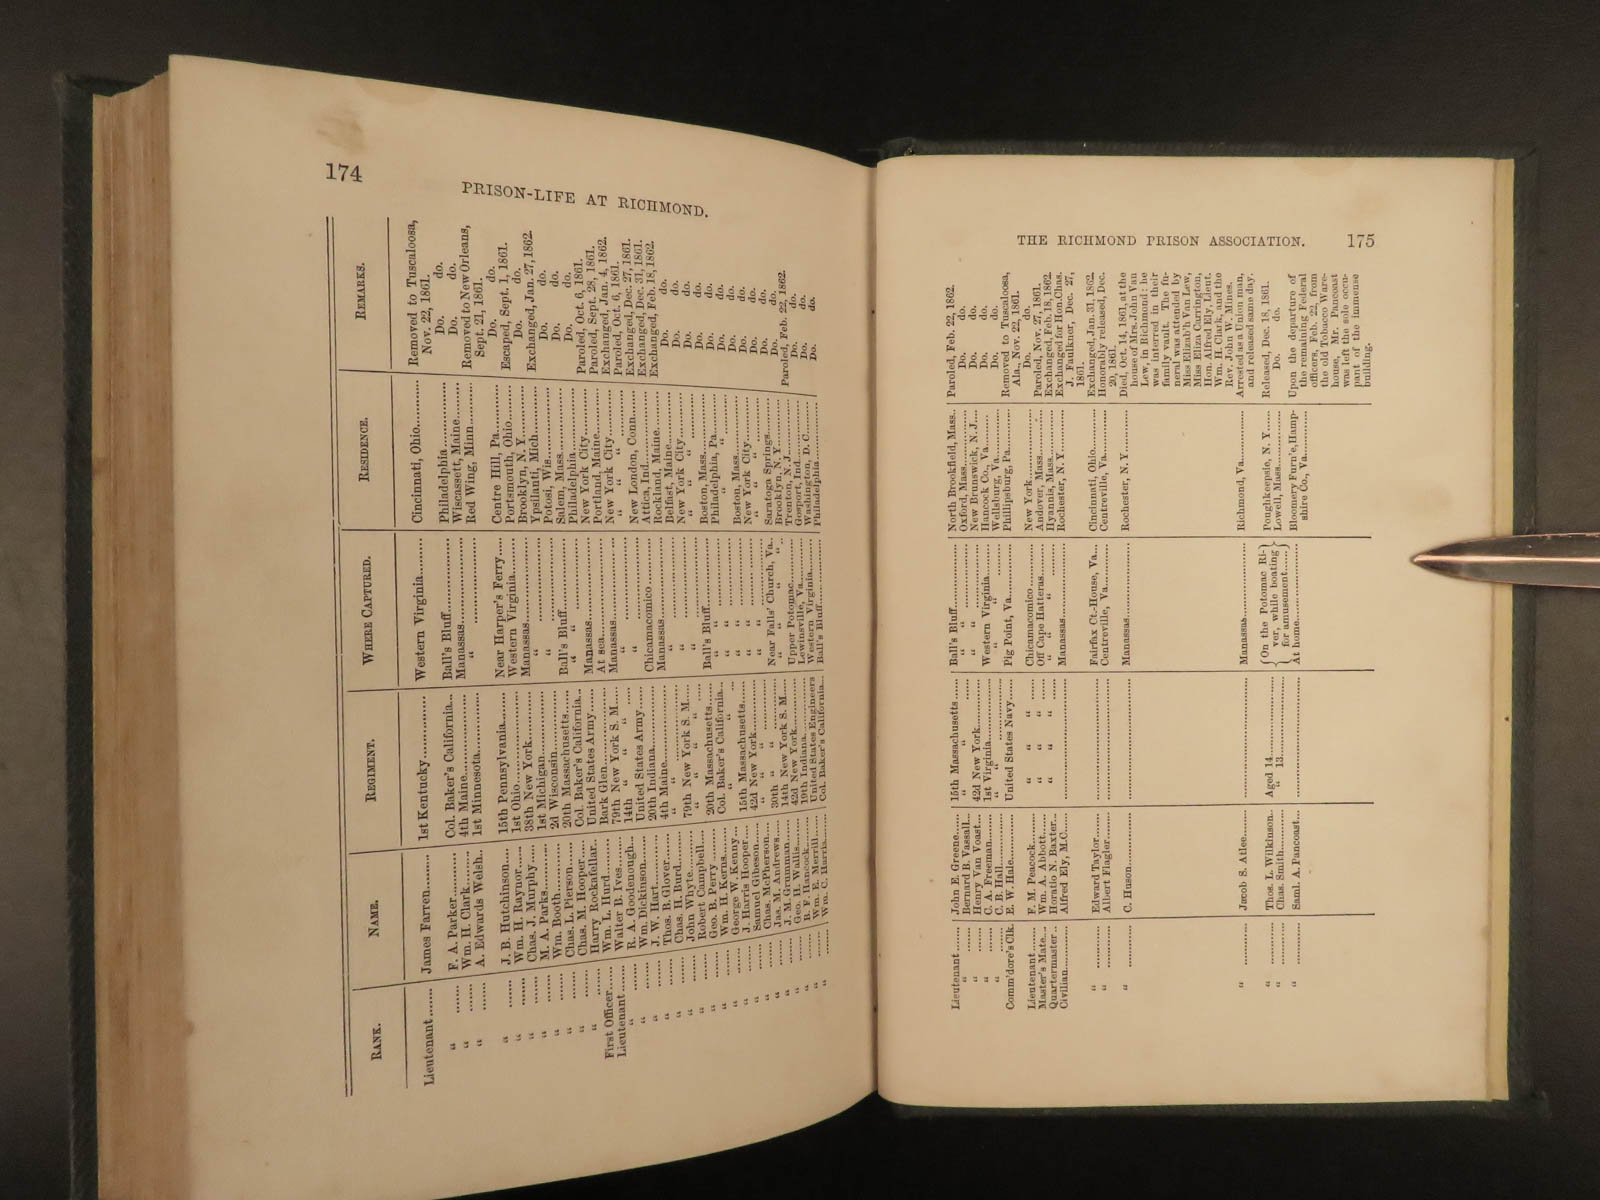 174
PRISON-LIFE AT RICHMOND.
RANK. NAME. REGIMENT. WHERE CAPTURED. RESIDENCE. REMARKS.
Lieutenant ....... James Farren......... 1st Kentucky............... Western Virginia........ Cincinnati, Ohio......... Removed to Tuscaloosa,
Nov. 22, 1861.
“ ....... F. A. Parker........... Col. Baker's California.. Ball's Bluff............... Philadelphia............... Do. do.
“ ....... Wm. H. Clark......... 4th Maine.................. Manassas.................. Wiscassett, Maine....... Do. do.
“ ....... A. Edwards Welsh.. 1st Minnesota............. “ .................. Red Wing, Minn......... Removed to New Orleans,
Sept. 21, 1861.
“ ....... J. B. Hutchinson.... 15th Pennsylvania........ Near Harper's Ferry..... Centre Hill, Pa........... Do. do.
“ ....... Wm. H Raynor....... 1st Ohio.................... Western Virginia......... Portsmouth, Ohio........ Escaped, Sept. 1, 1861.
“ ....... Chas. J. Murphy..... 38th New York............ Manassas.................. Brooklyn, N. Y........... Do. do.
“ ....... M. A. Parks........... 1st Michigan.............. “ .................. Ypsilanti, Mich.......... Exchanged, Jan. 27, 1862.
“ ....... Wm. Booth............ 2d Wisconsin.............. “ .................. Potosi, Wis................ Do. do.
“ ....... Chas. L. Pierson...... 20th Massachusetts....... Ball's Bluff............... Salem, Mass............... Do. do.
“ ....... Chas. M. Hooper..... Col. Baker's California.. “ .................. Philadelphia............... Do. do.
“ ....... Harry Rockafellar.. United States Army...... Manassas.................. New York City........... Paroled, Oct. 6, 1861.
First Officer....... Wm. L. Hurd.......... Bark Glen.................. At sea...................... Portland, Maine.......... Paroled, Sept. 28, 1861.
Lieutenant ....... Walter B. Ives....... 79th New York S. M..... Manassas.................. New York City........... Exchanged, Jan. 4, 1862.
“ ....... R. A. Goodenough... 14th “ “ .... “ .................. “ “ ........... Paroled, Oct. 6, 1861.
“ ....... Wm. Dickinson....... United States Army...... “ .................. New London, Conn..... Exchanged, Dec. 27, 1861.
“ ....... J. W. Hart............. 20th Indiana............... Chicamacomico .......... Attica, Ind................. Exchanged, Dec. 31, 1861.
“ ....... Thos. B. Glover....... 4th Maine.................. Manassas.................. Rockland, Maine......... Exchanged, Feb. 18, 1862.
“ ....... Chas. H. Burd......... “ .................. “ .................. Belfast, Maine............ Do. do.
“ ....... John Whyte........... 79th New York S. M..... “ .................. New York City........... Do. do.
“ ....... Robert Campbell..... “ “ ..... “ .................. “ “ ........... Do. do.
“ ....... Geo. B. Perry......... 20th Massachusetts...... Ball's Bluff............... Boston, Mass.............. Do. do.
“ ....... Wm. H. Kerns........ Col. Baker's California... “ “ ............... Philadelphia, Pa.......... Do. do.
“ ....... George W. Kenny... “ “ ... “ “ ............... “ “ .......... Do. do.
“ ....... J. Harris Hooper..... 15th Massachusetts....... “ “ ............... Boston, Mass.............. Do. do.
“ ....... Samuel Giberson...... 42d New York............. “ “ ............... New York City........... Do. do.
“ ....... Chas. McPherson..... “ “ ............. “ “ ............... “ “ ........... Do. do.
“ ....... Jas. M. Andrews..... 30th “ “ ............. Near Falls' Church, Va.. Saratoga Springs......... Do. do.
“ ....... J. M. Grumman...... 14th New York S. M..... “ “ “ .. Brooklyn, N. Y........... Paroled, Feb. 22, 1862.
“ ....... Geo. H. Wallis....... 42d New York............. Upper Potomac........... Trenton, N. J.............. Do. do.
“ ....... B. F. Hancock......... 19th Indiana............... Lewinsville, Va.......... Gosport, Ind.............. Do. do.
“ ....... Wm. E. Merrill...... United States Engineers Western Virginia......... Washington, D. C........ Do. do.
“ ....... Wm. C. Harris....... Col. Baker's California... Ball's Bluff............... Philadelphia............... Do. do.
THE RICHMOND PRISON ASSOCIATION. 175
Lieutenant ....... John E. Greene...... 15th Massachusetts ...... Ball's Bluff............... North Brookfield, Mass.. Paroled, Feb. 22, 1862.
“ ....... Bernard B. Vassall.. “ “ ...... “ “ ............... Oxford, Mass.............. Do. do.
“ ....... Henry Van Voast... 42d New York............. “ “ ............... New Brunswick, N. J.... Do. do.
“ ....... C. A. Freeman........ 1st Virginia................ Western Virginia........ Hancock Co., Va......... Do. do.
“ ....... C. B. Hall.............. “ “ ................ “ “ ........ Wellsburg, Va............ Do. do.
Comm'dore's Clk. E. W. Hale............ United States Navy...... Pig Point, Va............. Phillipsburg, Pa.......... Removed to Tuscaloosa,
Ala., Nov. 22, 1861.
Lieutenant....... F. M. Peacock........ “ “ “ ...... Chicamacomico.......... New York.................. Do. do.
Master's Mate.... Wm. A. Abbott....... “ “ “ ...... Off Cape Hatteras........ Andover, Mass............ Paroled, Nov. 27, 1861.
Quartermaster .. Horatio N. Baxter... “ “ “ ...... “ “ “ ........ Hyannis, Mass............ Exchanged, Feb. 18, 1862.
Civilian............ Alfred Ely, M.C...... .............................. Manassas.................. Rochester, N. Y........... Exchanged for Hon. Chas.
J. Faulkner, Dec. 27,
1861.
“ ............ Edward Taylor....... .............................. Fairfax Ct.-House, Va... Cincinnati, Ohio.......... Exchanged, Jan. 31, 1862.
“ ............ Albert Flagler........ .............................. Centreville, Va........... Centreville, Va........... Honorably released, Dec.
20, 1861.
“ ............ C. Huson............... .............................. Manassas.................. Rochester, N. Y........... Died, Oct. 14, 1861, at the
house of Mrs. John Van
Lew, in Richmond: he
was interred in their
family vault. The fu-
neral was attended by
Miss Elizab'h Van Lew,
Miss Eliza Carrington,
Hon. Alfred Ely, Lieut.
Wm. H. Clark, and the
Rev. John W. Mines.
“ ............ Jacob S. Atlee........ .............................. Manassas.................. Richmond, Va............. Arrested as a Union man,
and released same day.
“ ............ Thos. L. Wilkinson.. Aged 14..................... {On the Potomac Ri-} Poughkeepsie, N. Y...... Released, Dec. 18, 1861.
“ ............ Chas. Smith........... “ 13..................... ver, while boating Lowell, Mass.............. Do. do.
for amusement......
“ ............ Saml. A. Pancoast... .............................. At home................... Bloomery Furn'e, Hamp-
shire Co., Va............ Upon the departure of
the remaining Federal
officers, Feb. 22, from
the old Tobacco Ware-
house, Mr. Pancoast
was left the sole occu-
pant of the immense
building.